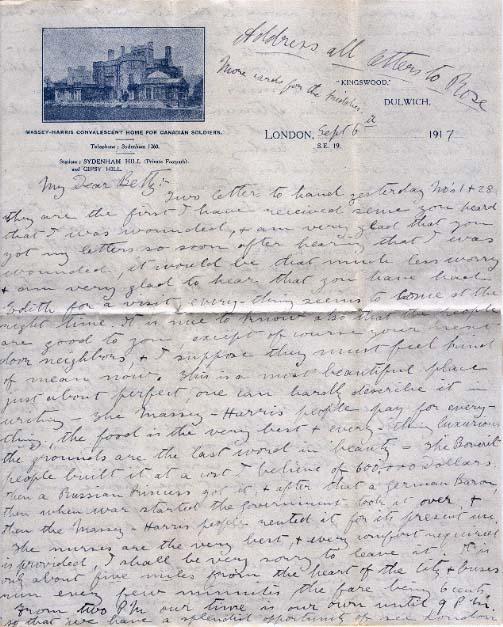 Address all letters to Rose
More cards for the
"KINGSWOOD,"
DULWICH,
MASSEY-HARRIS CONVALESCENT HOME FOR CANADIAN SOLDIERS.
LONDON, Sept 6th 1917
S.E. 19.
Telephone: Sydenham 1360.
Stations: SYDENHAM HILL (Private Footpath).
and GIPSY HILL.
My Dear Betty:-
Two letter to hand yesterday No's 1 & 28
they are the first I have received since you heard
that I was wounded, & am very glad that you
got my letters so soon after hearing that I was
wounded, it would be that much less worry
& am very glad to hear that you have had
Edith for a visit, every-thing seems to come at the
right time. It is nice to know also that the people
are good to you except of course your
door neighbors & I suppose they must feel kind
of mean now. This is a most beautiful place
just about perfect, one can hardly describe it in
writing. The Massey-Harris people pay for every-
thing, the food is the very best & every-thing luxurious
the grounds are the last word in beauty - The Boveril
people built it at a cost I believe of 600,000 dollars.
Then a Russian Princess got it, & after that a German Baron
then when war started the government took it over &
then the Massey-Harris people rented it for its present use
The nurses are the very best, & every comfort required
is provided, I shall be very sorry to leave it. It is
only about five miles from the heart of the city & buses
run every few minutes the fare being 6 cents.
From two P.M our time is our own until 9 P.M.
so that we have a splendid opportunity to see London